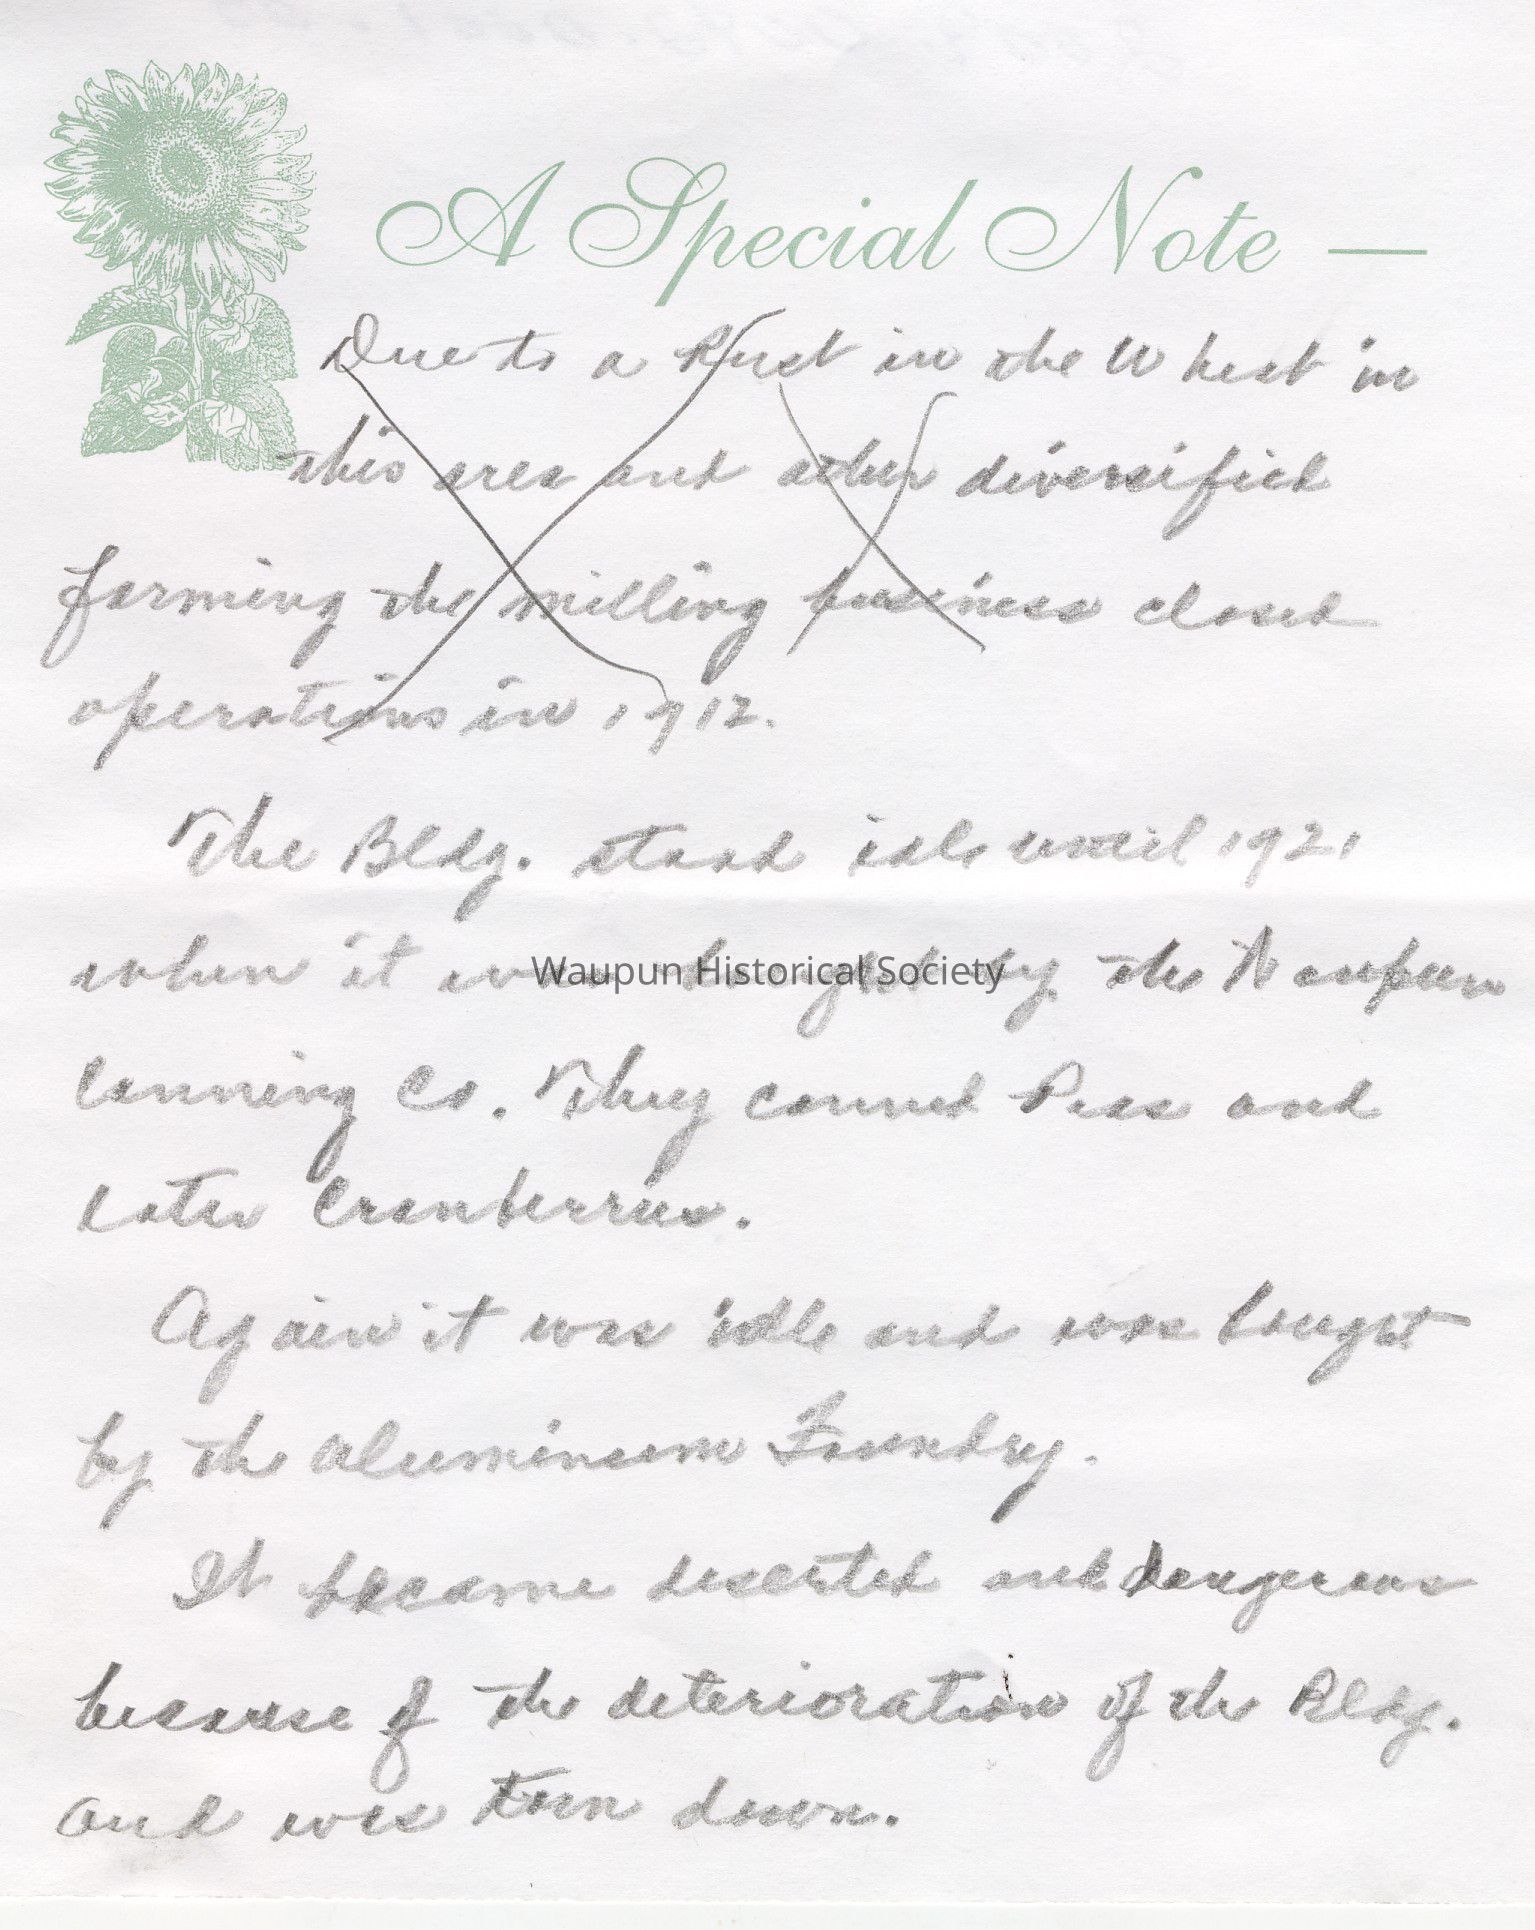 A Special Note —
Due to a Rust in the Wheat in
this area and other diversified
farming the milling business closed
operations in 1912.
The Bldg. stood idle until 1921
when it was bought by the Waupun
Waupun Historical Society
Canning Co. They canned Peas and
later Cranberries.
Again it was idle and was bought
by the Aluminum Foundry.
It became deserted and dangerous
because of the deterioration of the Bldg.
and was torn down.